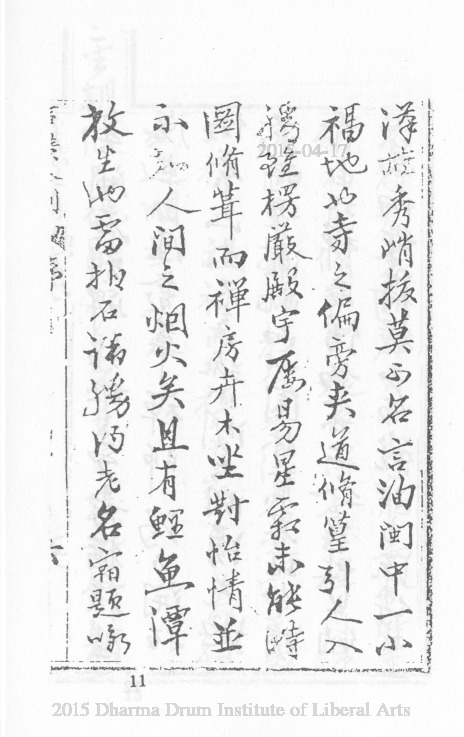 秀峭拔莫可名言洵閩中一小
福地也寺之偏旁夾道脩篁引人入
楞嚴殿宇屢易星霜未能時
圖脩葺而禪房卉木坐對怡情並
不知人間之烟火矣且有鯉魚潭
放生池雷拍石諸勝乃老名宿題咏
11
2015-04-17
2015 Dharma Drum Institute of Liberal Arts